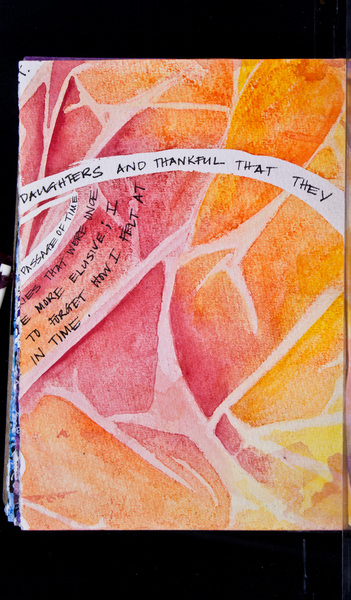 DAUGHTERS AND THANKFUL THAT THEY
PASSAGE OF TIME
THAT WERE ONCE
MORE ELUSIVE; II
TO FORGET HOW I FELT AT
IN TIME.